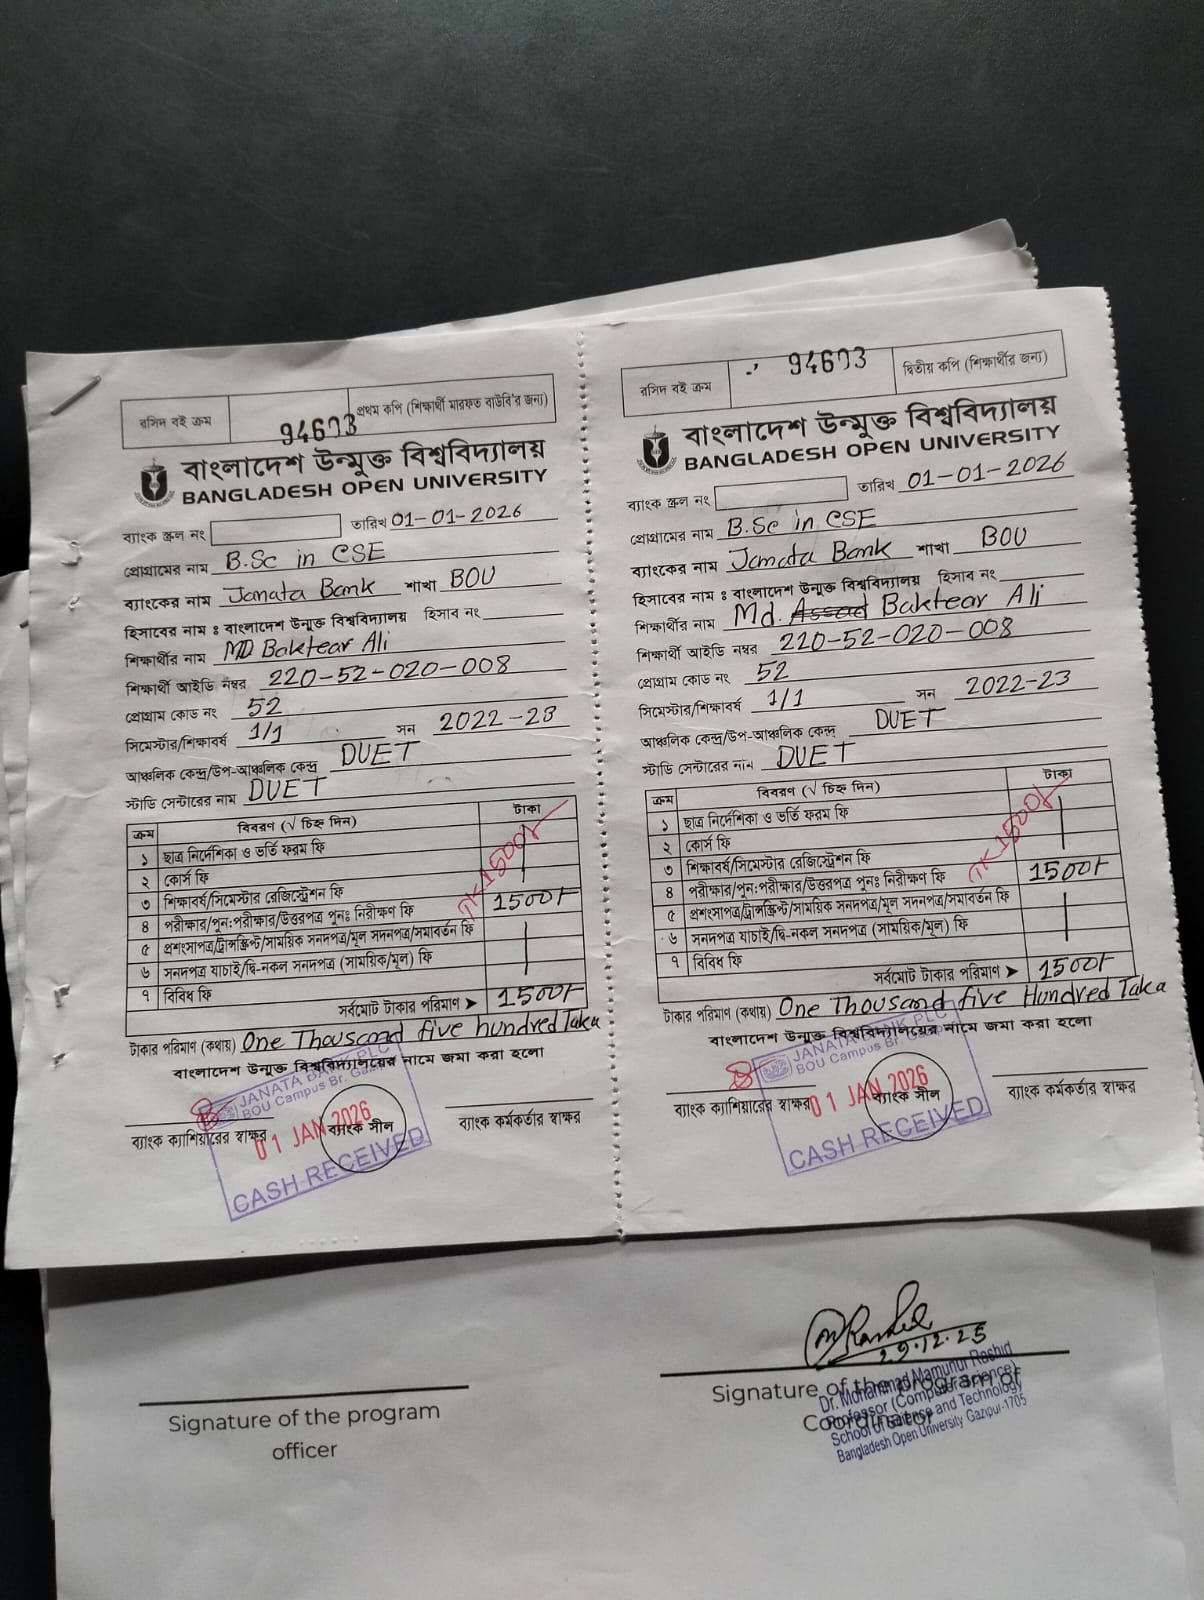 রসিদ বই ক্রম
94673
প্রথম কপি (শিক্ষার্থী মারফত বাউবি'র জন্য)
বাংলাদেশ উন্মুক্ত বিশ্ববিদ্যালয়
BANGLADESH OPEN UNIVERSITY
ব্যাংক স্ক্রল নং তারিখ 01-01-2026
প্রোগ্রামের নাম B.Sc in CSE
ব্যাংকের নাম Janata Bank শাখা BOU
হিসাবের নাম : বাংলাদেশ উন্মুক্ত বিশ্ববিদ্যালয় হিসাব নং
শিক্ষার্থীর নাম MD Baktear Ali
শিক্ষার্থী আইডি নম্বর 220-52-020-008
প্রোগ্রাম কোড নং 52
সিমেস্টার/শিক্ষাবর্ষ 1/1 সন 2022-23
আঞ্চলিক কেন্দ্র/উপ-আঞ্চলিক কেন্দ্র DUET
স্টাডি সেন্টারের নাম DUET
ক্রম বিবরণ (√ চিহ্ন দিন) টাকা
১ ছাত্র নির্দেশিকা ও ভর্তি ফরম ফি
২ কোর্স ফি
৩ শিক্ষাবর্ষ/সিমেস্টার রেজিস্ট্রেশন ফি
৪ পরীক্ষার/পুন:পরীক্ষার/উত্তরপত্র পুনঃ নিরীক্ষণ ফি 1500/-
৫ প্রশংসাপত্র/ট্রান্সক্রিপ্ট/সাময়িক সনদপত্র/মূল সনদপত্র/সমাবর্তন ফি
৬ সনদপত্র যাচাই/দ্বি-নকল সনদপত্র (সাময়িক/মূল) ফি
৭ বিবিধ ফি
TK 1500/-
সর্বমোট টাকার পরিমাণ ➤ 1500/-
টাকার পরিমাণ (কথায়) One Thousand five hundred Taka
বাংলাদেশ উন্মুক্ত বিশ্ববিদ্যালয়ের নামে জমা করা হলো
JANATA BANK PLC
BOU Campus Br. Gazipur
01 JAN 2026
ব্যাংক সীল
CASH RECEIVED
ব্যাংক ক্যাশিয়ারের স্বাক্ষর
ব্যাংক কর্মকর্তার স্বাক্ষর
রসিদ বই ক্রম
94673
দ্বিতীয় কপি (শিক্ষার্থীর জন্য)
বাংলাদেশ উন্মুক্ত বিশ্ববিদ্যালয়
BANGLADESH OPEN UNIVERSITY
ব্যাংক স্ক্রল নং তারিখ 01-01-2026
প্রোগ্রামের নাম B.Sc in CSE
ব্যাংকের নাম Janata Bank শাখা BOU
হিসাবের নাম : বাংলাদেশ উন্মুক্ত বিশ্ববিদ্যালয় হিসাব নং
শিক্ষার্থীর নাম Md. Baktear Ali
শিক্ষার্থী আইডি নম্বর 220-52-020-008
প্রোগ্রাম কোড নং 52
সিমেস্টার/শিক্ষাবর্ষ 1/1 সন 2022-23
আঞ্চলিক কেন্দ্র/উপ-আঞ্চলিক কেন্দ্র DUET
স্টাডি সেন্টারের নাম DUET
ক্রম বিবরণ (√ চিহ্ন দিন) টাকা
১ ছাত্র নির্দেশিকা ও ভর্তি ফরম ফি
২ কোর্স ফি
৩ শিক্ষাবর্ষ/সিমেস্টার রেজিস্ট্রেশন ফি
৪ পরীক্ষার/পুন:পরীক্ষার/উত্তরপত্র পুনঃ নিরীক্ষণ ফি 1500/-
৫ প্রশংসাপত্র/ট্রান্সক্রিপ্ট/সাময়িক সনদপত্র/মূল সনদপত্র/সমাবর্তন ফি
৬ সনদপত্র যাচাই/দ্বি-নকল সনদপত্র (সাময়িক/মূল) ফি
৭ বিবিধ ফি
TK 1500/-
সর্বমোট টাকার পরিমাণ ➤ 1500/-
টাকার পরিমাণ (কথায়) One Thousand five Hundred Taka
বাংলাদেশ উন্মুক্ত বিশ্ববিদ্যালয়ের নামে জমা করা হলো
JANATA BANK PLC
BOU Campus Br.
01 JAN 2026
ব্যাংক সীল
CASH RECEIVED
ব্যাংক ক্যাশিয়ারের স্বাক্ষর
ব্যাংক কর্মকর্তার স্বাক্ষর
Signature of the program
officer
29.12.25
Signature of the program of
Coordinator
Dr. Mohammad Mamunur Rashid
Professor (Computer Science)
School of Science and Technology
Bangladesh Open University Gazipur-1705